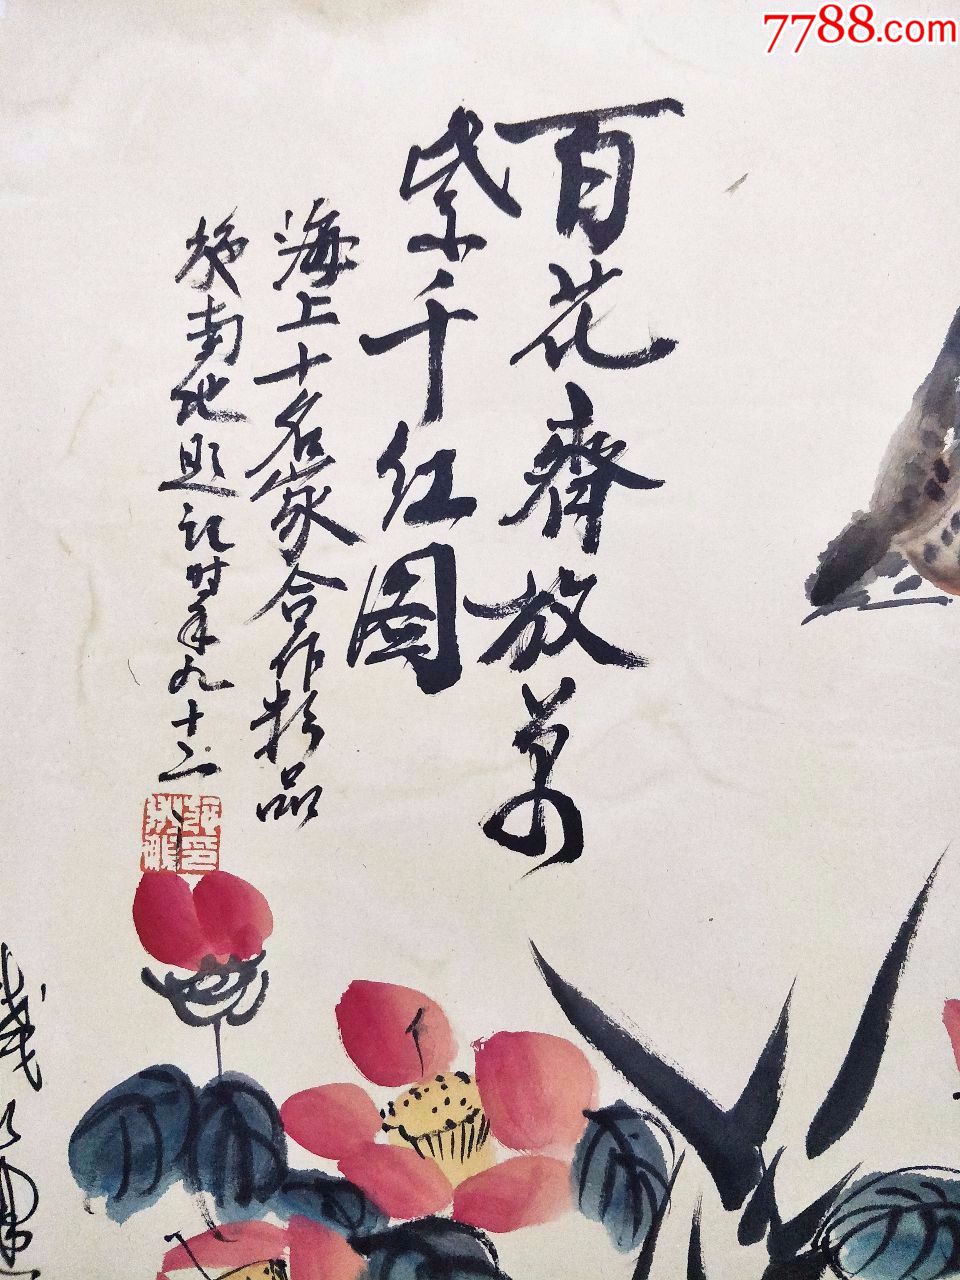 7788.com
百花齊放萬
紫千红图
海上十名家合作精品
施南池题记时年九十二